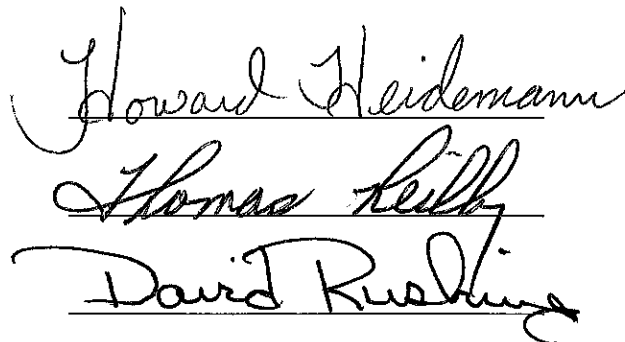 Howard Heidemann
Thomas Reilly
David Rushing